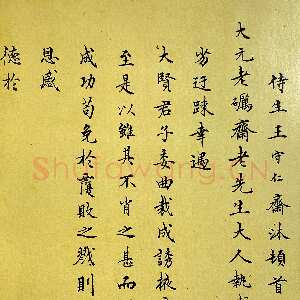 侍生王守仁齋沐頓首
大元老礪齋老先生大人執
劣迂踈幸遇
大賢君子委曲裁成誘掖
至是以雖其不肖之甚而
成功苟免於覆敗之戮則
恩感
德於
Shufawang.CN